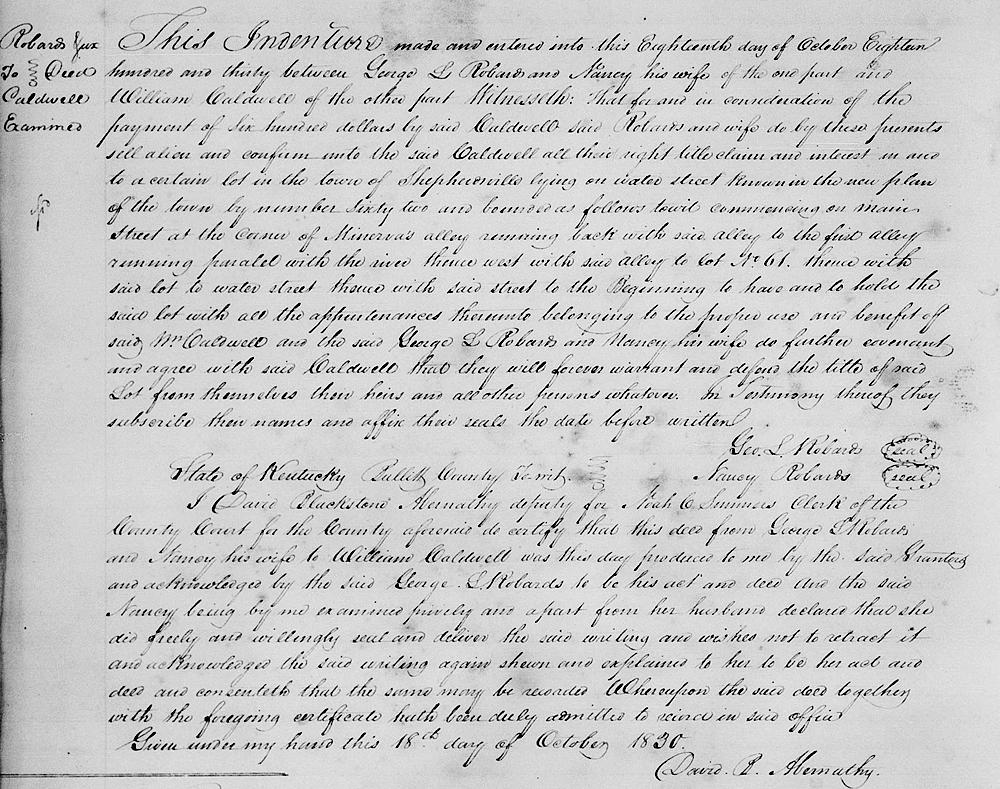 Robards & ux
To Deed
Caldwell
Examined
This Indenture made and entered into this Eighteenth day of October Eighteen
hundred and thirty between George L Robards and Nancy his wife of the one part and
William Caldwell of the other part Witnesseth: That for and in consideration of the
payment of Six hundred dollars by said Caldwell said Robards and wife do by these presents
sell alien and confirm unto the said Caldwell all their right title claim and interest in and
to a certain lot in the town of Shepherdsville lying on water street known in the new plan
of the town by number Sixty two and bounded as follows towit commencing on main
Street at the Corner of Minerva's alley running back with said alley to the first alley
running paralel with the river thence west with said alley to lot No 61. thence with
said lot to water street thence with said street to the Beginning to have and to hold the
said lot with all the appurtenances thereunto belonging to the proper use and benefit of
said Wm Caldwell and the said George L Robards and Nancy his wife do further covenant
and agree with said Caldwell that they will forever warrant and defend the title of said
Lot from themselves their heirs and all other persons whatever. In Testimony thereof they
subscribe their names and affix their seals the date before written
Geo. L Robards seal
State of Kentucky Bullitt County To wit. Nancy Robards seal
I David Blackstone Abernathy deputy for Noah C Summers Clerk of the
County Court for the County aforesaid do certify that this deed from George L Robards
and Nancy his wife to William Caldwell was this day produced to me by the said Grantors
and acknowledged by the said George L Robards to be his act and deed and the said
Nancy being by me examined privily and apart from her husband declared that she
did freely and willingly seal and deliver the said writing and wishes not to retract it
and acknowledged the said writing again shewn and explained to her to be her act and
deed and consenteth that the same may be recorded Whereupon the said deed together
with the foregoing certificate hath been duly admitted to record in said office
Given under my hand this 18th day of October 1830.
David. B. Abernathy.